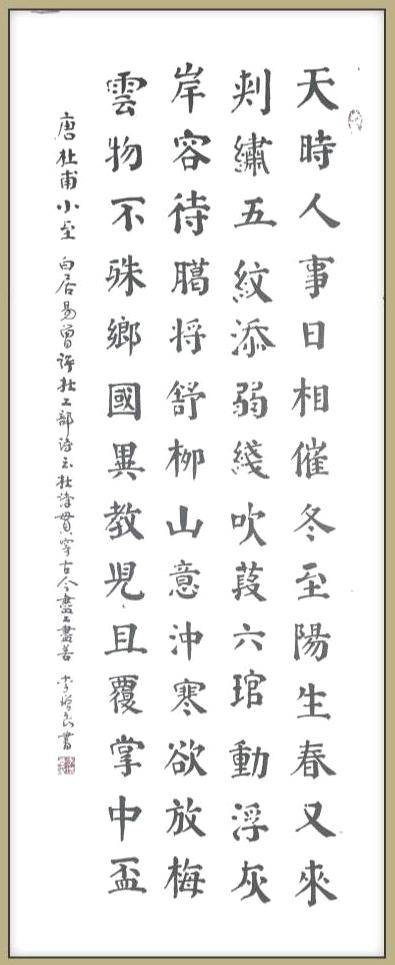 天時人事日相催冬至陽生春又來
刺繡五紋添弱綫吹葭六琯動浮灰
岸容待臈将舒柳山意沖寒欲放梅
雲物不殊鄉國異教兒且覆掌中盃
唐杜甫小至 白居易曾評杜工部詩云杜詩貫穿古今盡工盡善 李增書